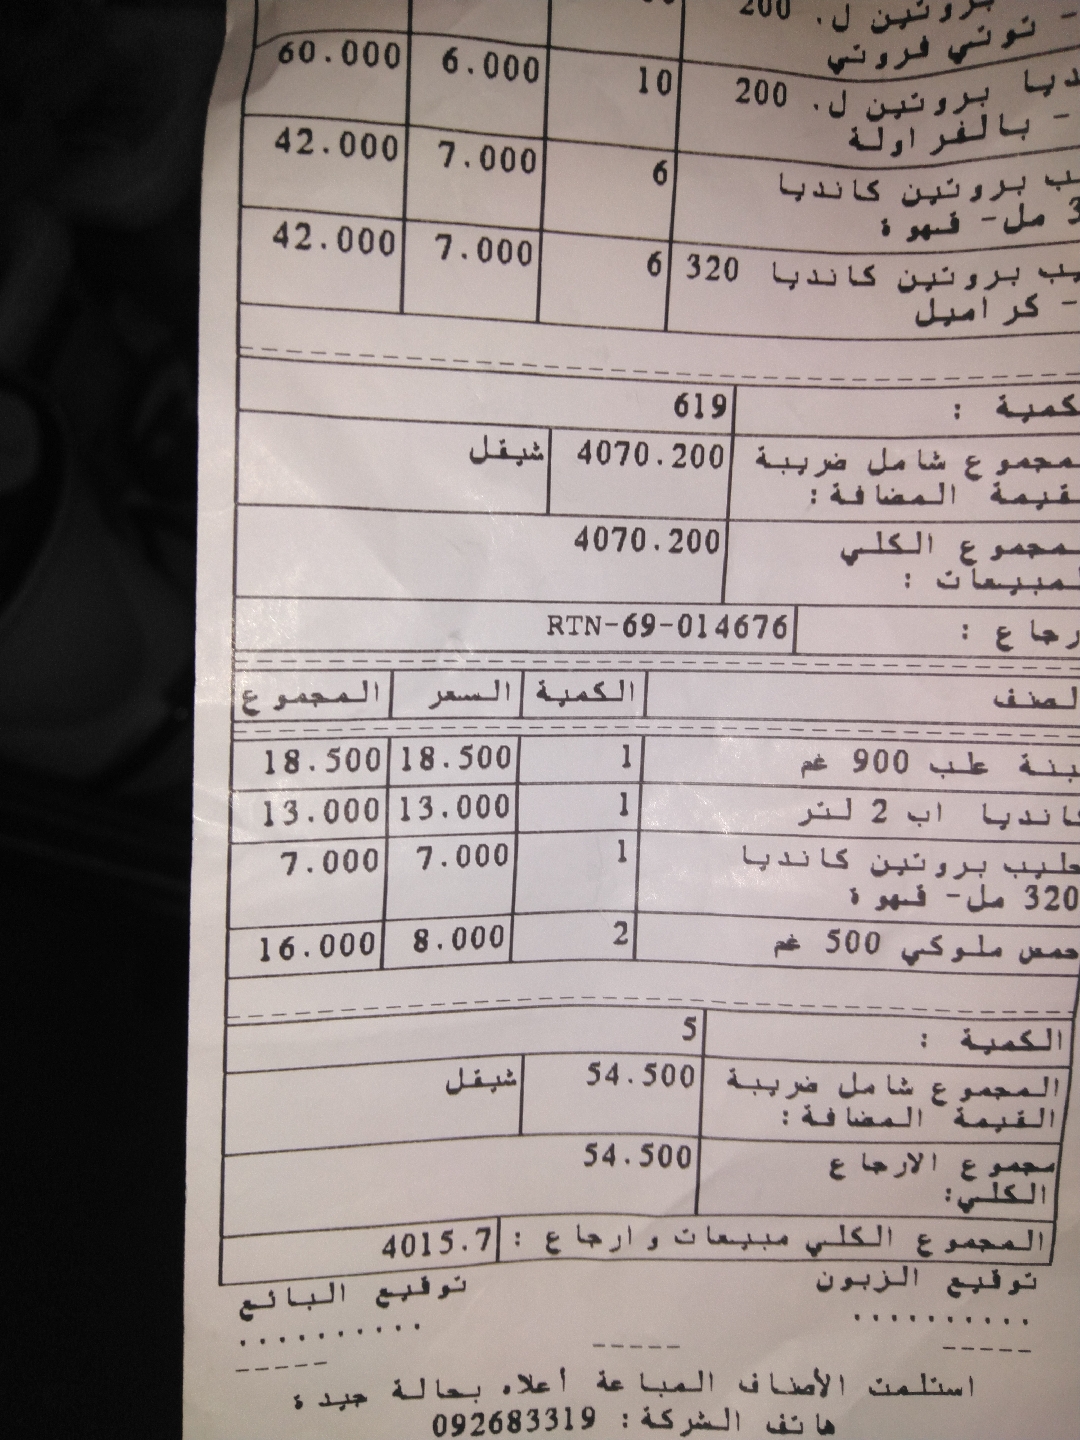 بروتين ل. 200
- توتي فروتي
بروتين ل. 200 10 6.000 60.000
- بالفراولة
بروتين كانديا 6 7.000 42.000
مل- قهوة
بروتين كانديا 320 6 7.000 42.000
- كراميل
كمية : 619
مجموع شامل ضريبة 4070.200 شيقل
قيمة المضافة:
مجموع الكلي 4070.200
مبيعات :
رجاع : RTN-69-014676
لصنف الكمية السعر المجموع
علب 900 غم 1 18.500 18.500
كانديا اب 2 لتر 1 13.000 13.000
حليب بروتين كانديا 1 7.000 7.000
320 مل- قهوة
حمص ملوكي 500 غم 2 8.000 16.000
الكمية : 5
المجموع شامل ضريبة 54.500 شيقل
القيمة المضافة:
مجموع الارجاع 54.500
الكلي:
المجموع الكلي مبيعات وارجاع : 4015.7
توقيع الزبون توقيع البائع
.......... ..........
----- ----- -----
استلمت الأصناف المباعة أعلاه بحالة جيدة
هاتف الشركة: 092683319